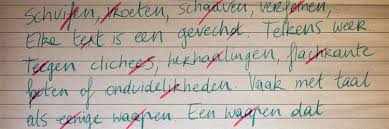 schuifen, kroeten, schaaven, verfeinen,
Elke text is een gevecht. Telkens weer
Teegen clichees, herhaalingen, flachrante
foten of onduidelijkheden. Vaak met taal
als eenige waapen. Een waapen dat